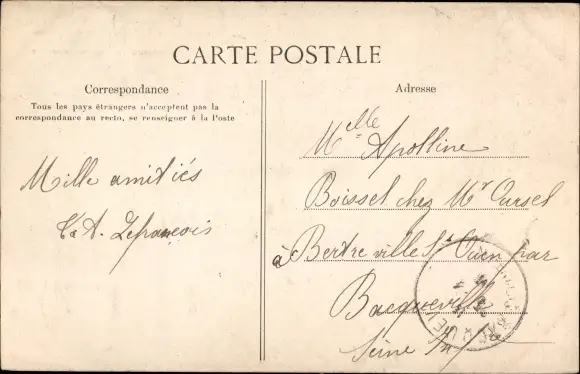 CARTE POSTALE
Correspondance
Tous les pays étrangers n'acceptent pas la
correspondance au recto, se renseigner à la Poste
Mille amitiés
A. Lefrançois
Adresse
Melle Apolline
Boissel chez Mr Oursel
à Bertreville St Ouen par
Bacqueville
Seine Infre